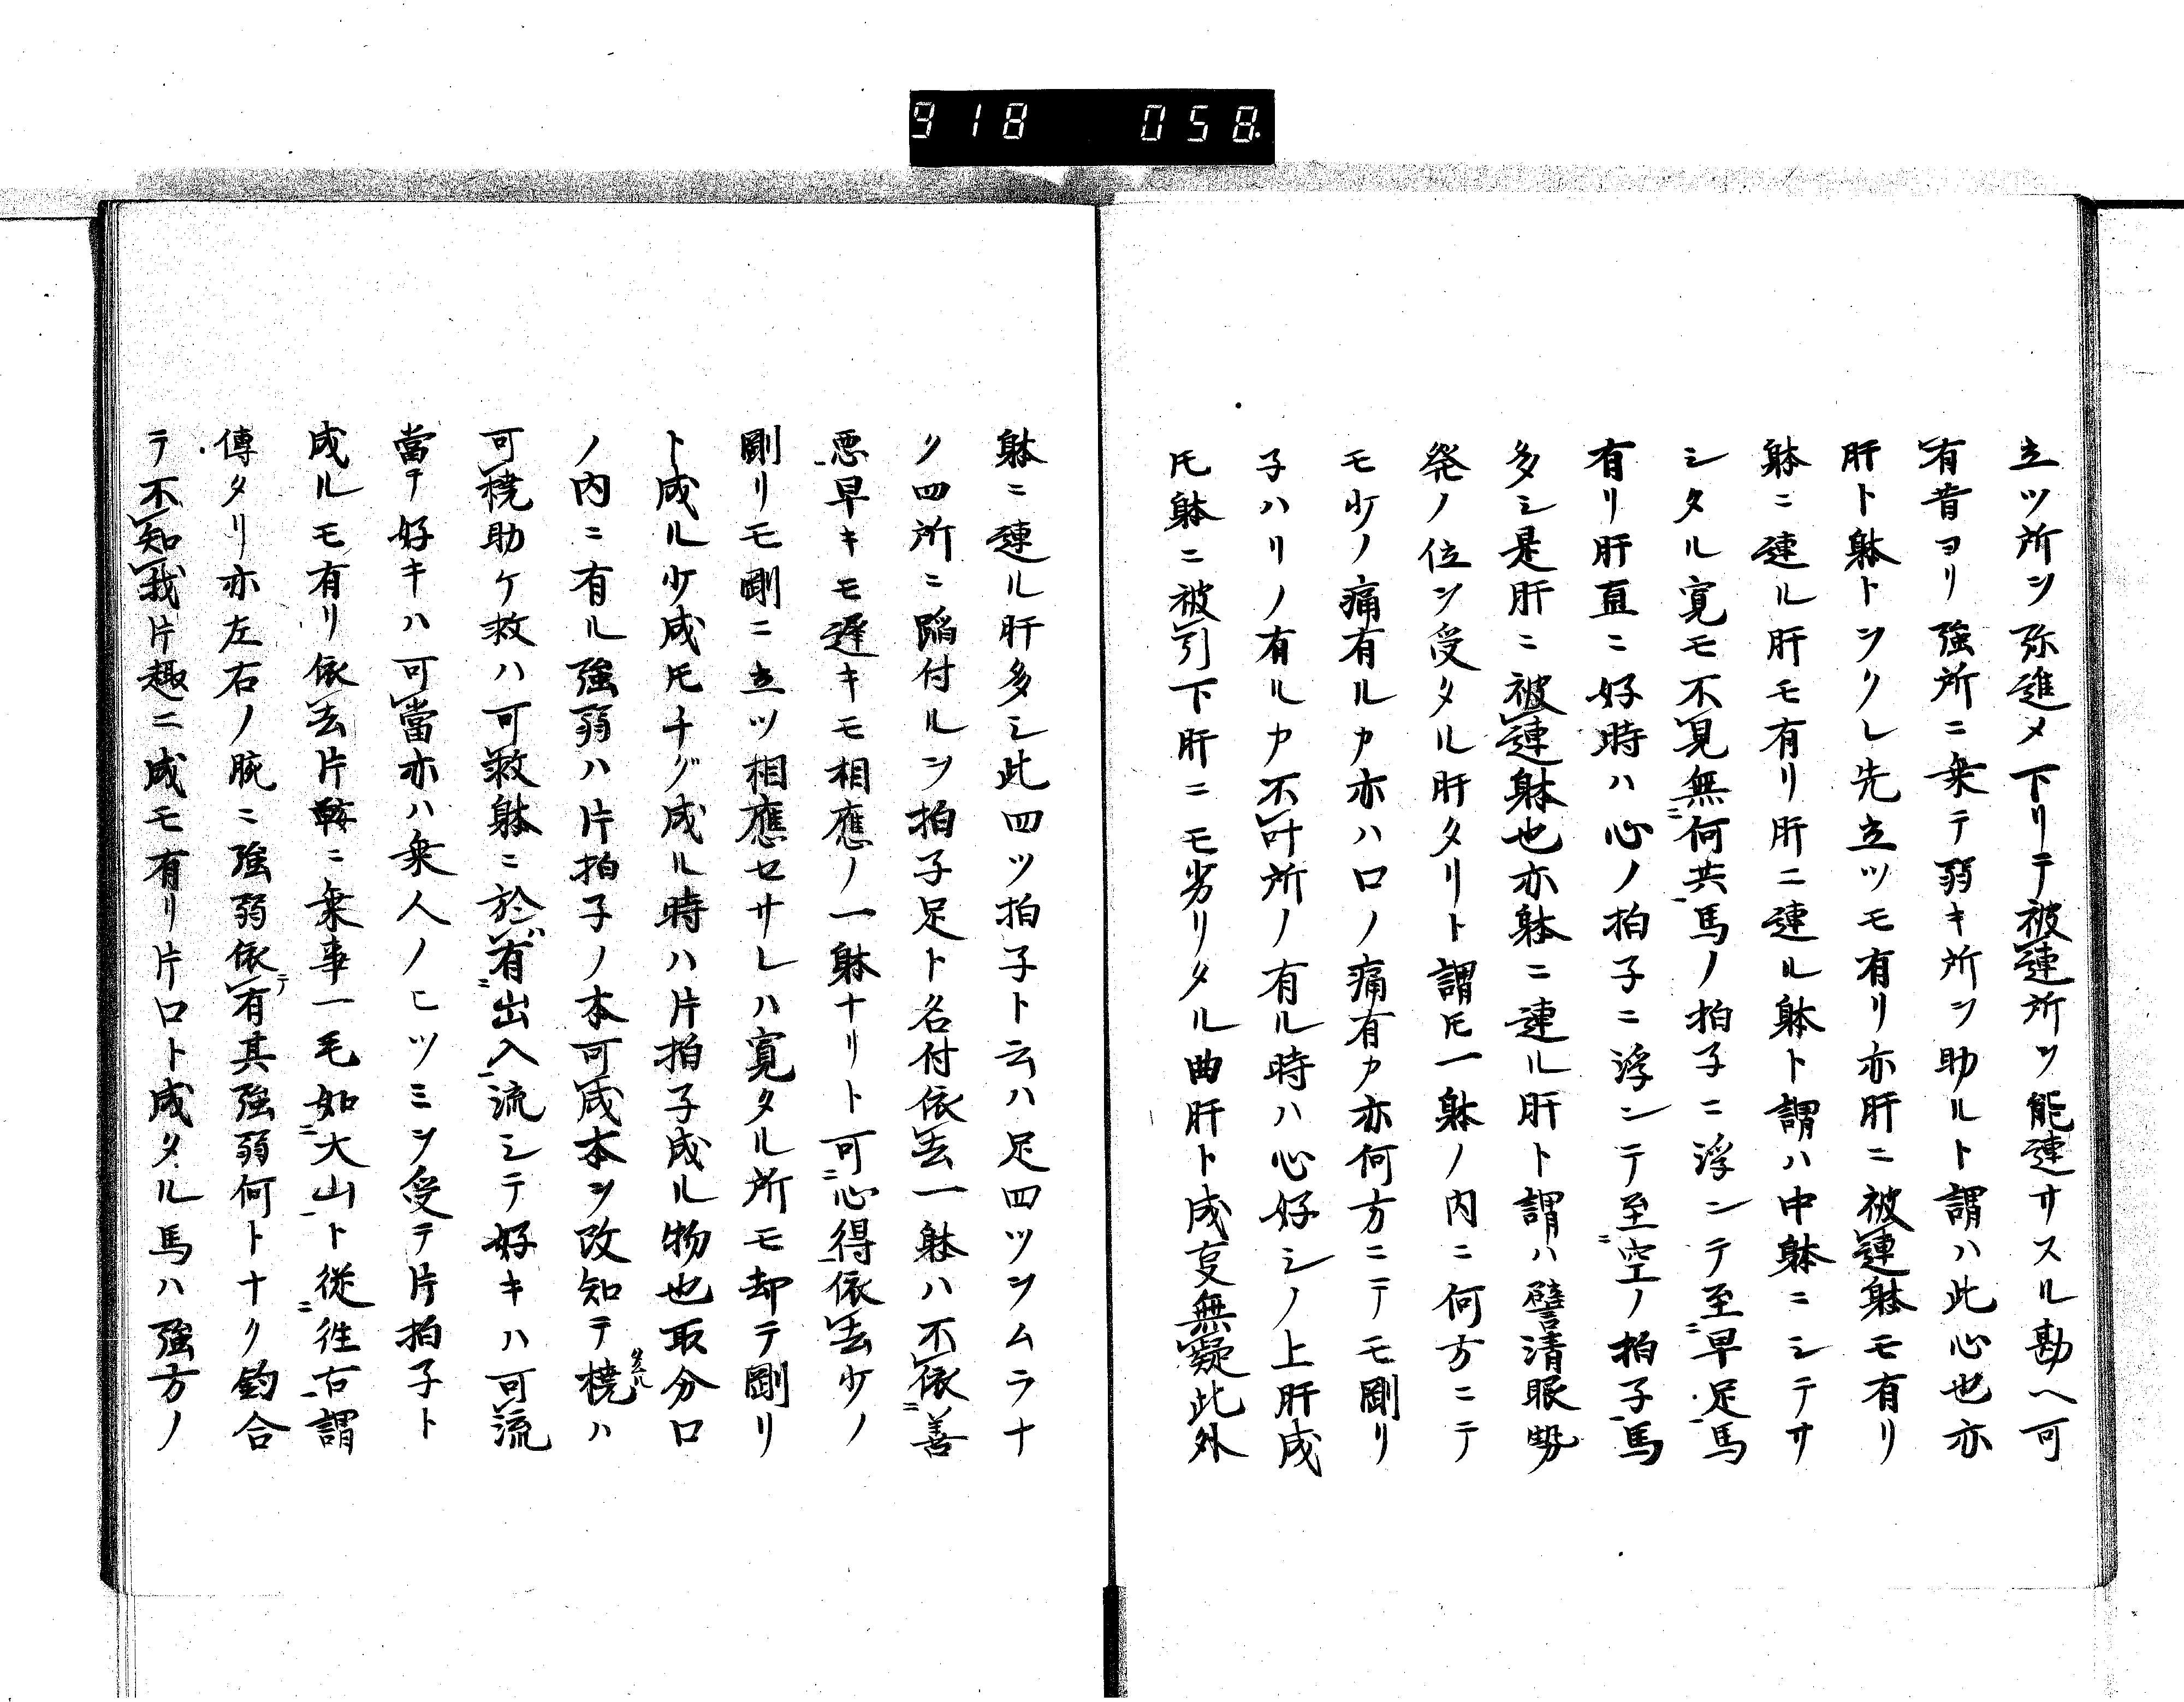 918 058.
立ツ所ヲ弥進メ下リテ被連所ヲ能連サスル勘ヘ可
有音ヨリ強所ニ乗テ弱キ所ヲ助ルト謂ハ此心也亦
肝ト躰トヲクレ先立ツモ有リ亦肝ニ被連躰モ有リ
躰ニ連ル肝モ有リ肝ニ連ル躰ト謂ハ中躰ニシテサ
シタル寛モ不見無何共馬ノ拍子ニ浮ンテ至早足馬
有リ肝直ニ好時ハ心ノ拍子ニ浮ンテ至空ノ拍子馬
多シ是肝ニ被連躰也亦躰ニ連ル肝ト謂ハ譬清眼勢
発ノ位ヲ受タル肝タリト謂𪜈一躰ノ内ニ何方ニテ
モ少ノ痛有ルカ亦ハ口ノ痛有カ亦何方ニテモ剛リ
子ハリノ有ルカ不叶所ノ有ル時ハ心好シノ上肝成
𪜈躰ニ被引下肝ニモ劣リタル曲肝ト成亥無疑此外
躰ニ連ル肝多シ此四ツ拍子ト云ハ足四ツヲムラナ
ク四所ニ蹈付ルヲ拍子足ト名付依去一躰ハ不依善
悪早キモ遅キモ相應ノ一躰ナリト可心得依去少ノ
剛リモ剛ニ立ツ相應セサレハ寛タル所モ却テ剛リ
ト成ル少成𪜈チグ成ル時ハ片拍子成ル物也取分口
ノ内ニ有ル強弱ハ片拍子ノ本可成本ヲ改知テ橈ハ
可橈助ケ救ハ可救躰ニ於有出入流シテ好キハ可流
當テ好キハ可當亦ハ乗人ノヒツミヲ受テ片拍子ト
成ルモ有リ依去片鞍ニ乗事一毛如大山ト從徃古謂
傳タリ亦左右ノ腕ニ強弱依有其強弱何トナク釣合
テ不知我片趣ニ成モ有リ片口ト成タル馬ハ強方ノ